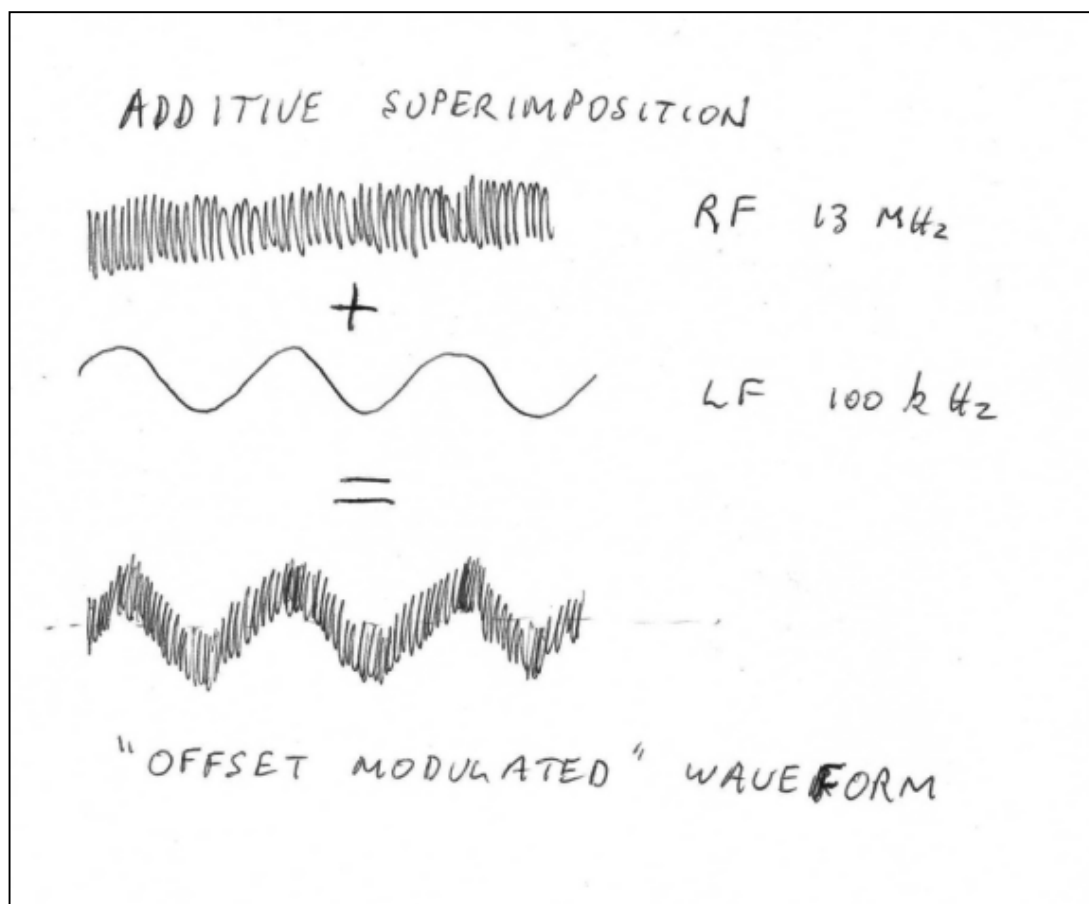 ADDITIVE SUPERIMPOSITION
RF 13 MHz
+
LF 100 kHz
=
"OFFSET MODULATED" WAVEFORM